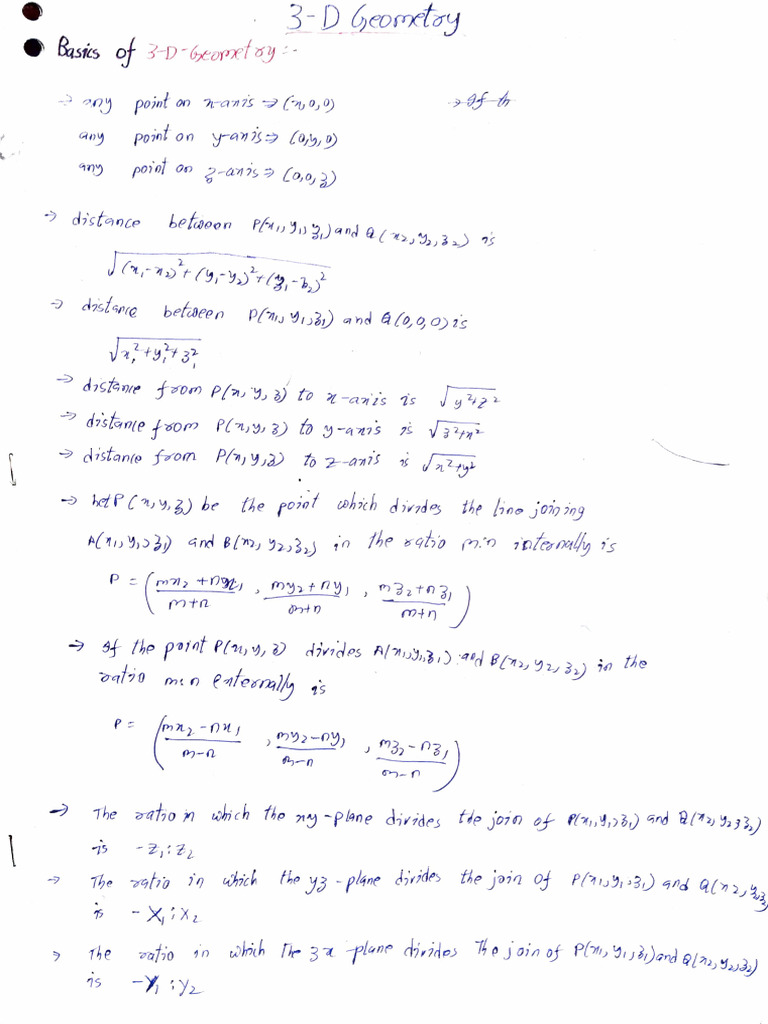 3-D Geometry
Basics of 3-D-Geometry:-
→ any point on x-axis ⇒ (x,0,0) → If th
any point on y-axis ⇒ (0,y,0)
any point on z-axis ⇒ (0,0,z)
→ distance between P(x₁,y₁,z₁) and Q(x₂,y₂,z₂) is
√(x₁-x₂)²+(y₁-y₂)²+(z₁-z₂)²
→ distance between P(x₁,y₁,z₁) and Q(0,0,0) is
√x₁²+y₁²+z₁²
→ distance from P(x,y,z) to x-axis is √y²+z²
→ distance from P(x,y,z) to y-axis is √z²+x²
→ distance from P(x,y,z) to z-axis is √x²+y²
→ let P(x,y,z) be the point which divides the line joining
A(x₁,y₁,z₁) and B(x₂,y₂,z₂) in the ratio m:n internally is
P = ((mx₂+nx₁)/(m+n), (my₂+ny₁)/(m+n), (mz₂+nz₁)/(m+n))
→ If the point P(x,y,z) divides A(x₁,y₁,z₁) and B(x₂,y₂,z₂) in the
ratio m:n externally is
P = ((mx₂-nx₁)/(m-n), (my₂-ny₁)/(m-n), (mz₂-nz₁)/(m-n))
→ The ratio in which the xy-plane divides the join of P(x₁,y₁,z₁) and Q(x₂,y₂,z₂)
is -z₁:z₂
→ The ratio in which the yz-plane divides the join of P(x₁,y₁,z₁) and Q(x₂,y₂,z₂)
is -X₁:X₂
→ The ratio in which the zx-plane divides The join of P(x₁,y₁,z₁) and Q(x₂,y₂,z₂)
is -Y₁:Y₂